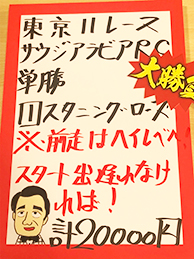 東京11レース
サウジアラビアRC
単勝
1スタニングローズ
※前走はハイレベ
スタート出遅れなけ
れば!
計20000円
大勝